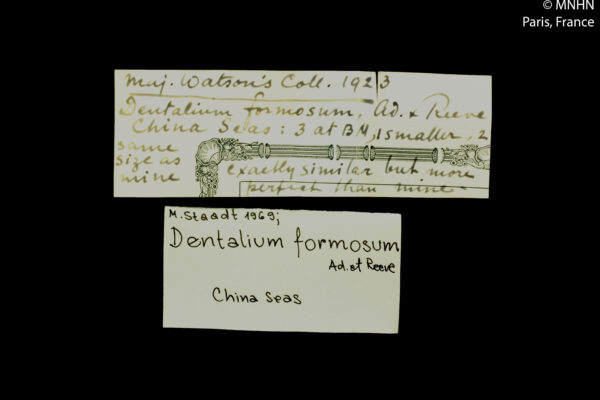 © MNHN
Paris, France
Maj. Watson's Coll. 1923
Dentalium formosum, Ad. & Reeve
China Seas: 3 at BM, 1 smaller, 2
same
size as
mine
exactly similar but more
perfect than mine
M. Staadt 1969;
Dentalium formosum
Ad. et Reeve
China Seas